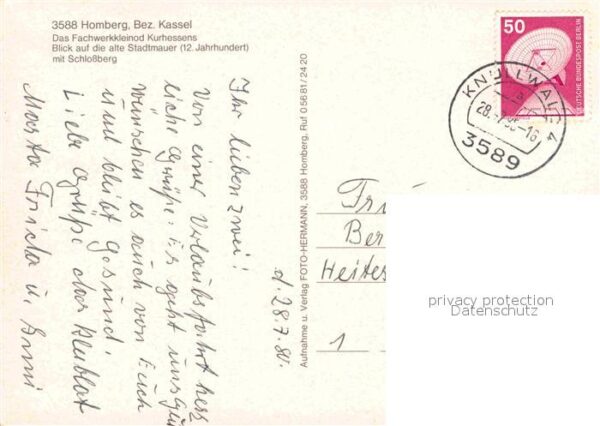 3588 Homberg, Bez. Kassel
Das Fachwerkkleinod Kurhessens
Blick auf die alte Stadtmauer (12. Jahrhundert)
mit Schloßberg
50
DEUTSCHE BUNDESPOST BERLIN
KNÜLLWALD 4
28.-7.80-16
3589
Ihr lieben zwei!
Von einer Urlaubsfahrt herz
liche Grüße. Es geht uns gut
wünschen es auch von Euch
und bleibt Gesund.
Liebe Grüße das Kleeblatt
Marta Frieda u. Emmi
d. 28.7.80.
Aufnahme u. Verlag FOTO-HERMANN, 3588 Homberg, Ruf 0 56 81 / 24 20
Ber
1
privacy protection
Datenschutz